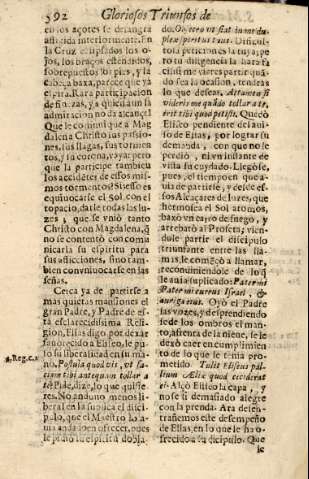 592 Gloriosos Triunfos de
cuyos açotes se desangra
afligida interiormente. En
la Cruz eclipsados los o-
jos, los braços estendidos,
sobrepuestos los pies, y la
cabeça baxa, parece que ya
espira. Rara participacion
de finezas, y a quien aun la
admiracion no da alcança!
Que le comunique a Mag-
dalena Christo sus passio-
nes, sus llagas, sus tormen-
tos, y su corona, vaya: pero
que la participe tambien
los accidētes de essos mis-
mos tormentos! Si esso es
equivocarse el Sol con el
topacio, darle todas las lu-
zes, que se viniò tanto
Christo con Magdalena, q̃
no se contentò con comu-
nicarla su espiritu para
sus aflicciones, sino tam-
bien convinuocarse en las
señas.
Cerca ya de partirse a
mas quietas mansiones el
gran Padre, y Padre de es-
ta esclarecidissima Reli-
gion, Elias digo, por dexar
favorecido a Eliseo, le pu-
so su liberalidad en su ma-
4. Reg. c. 2.
no. Postula quod vis, ut fa-
ciam tibi antequam tollar a
te: Pide, dize, lo que quisie-
res. No anduvo menos li-
beral en la suplica el disci-
pulo, que el Maestro lo a-
via andado en ofrecer, pues
le pidiò su espiritu dobla-
do. Obsecro ut fiat in me du-
plex spiritus tuus. Dificul-
tosa peticion es la tuya, pe-
ro tu diligencia la harà fa-
cil si me vieres partir: quā-
do sea la ocasion, tendràs
lo que deseas. Attamen si
videris me quādo tollar a te,
erit tibi quod petisti. Quedò
Eliseo pendiente del aui-
so de Elias, por lograr su
demanda, con que no le
perdiò, ni vn instante de
vista su cuydado. Llegòse,
pues, el tiempo en que a-
uia de partirse, y desde es-
sos Alcaçares de luzes, que
hermosea el Sol atomos,
baxò vn carro de fuego, y
arrebatò al Profeta; vien-
dole partir el discipulo
triunfante entre las lla-
mas, le començò a llamar,
reconuiniendole de lo q̃
le auia suplicado: Pater mi
Pater mi currus Israel, &
auriga eius. Oyò el Padre
las vozes, y desprendiendo
se de los ombros el man-
to, afrenta de la nieve, se le
dexò caer en cumplimien-
to de lo que le tenia pro-
metido Tulit Eliseus pal-
lium Æliæ quod ceciderat
ei. Alçò Eliseo la capa, y
no se li demasiado alegre
con la prenda. Ara deten-
trañemos este desempeño
de Elias, en lo que le ha o-
frecido a su dicipulo. Que
le